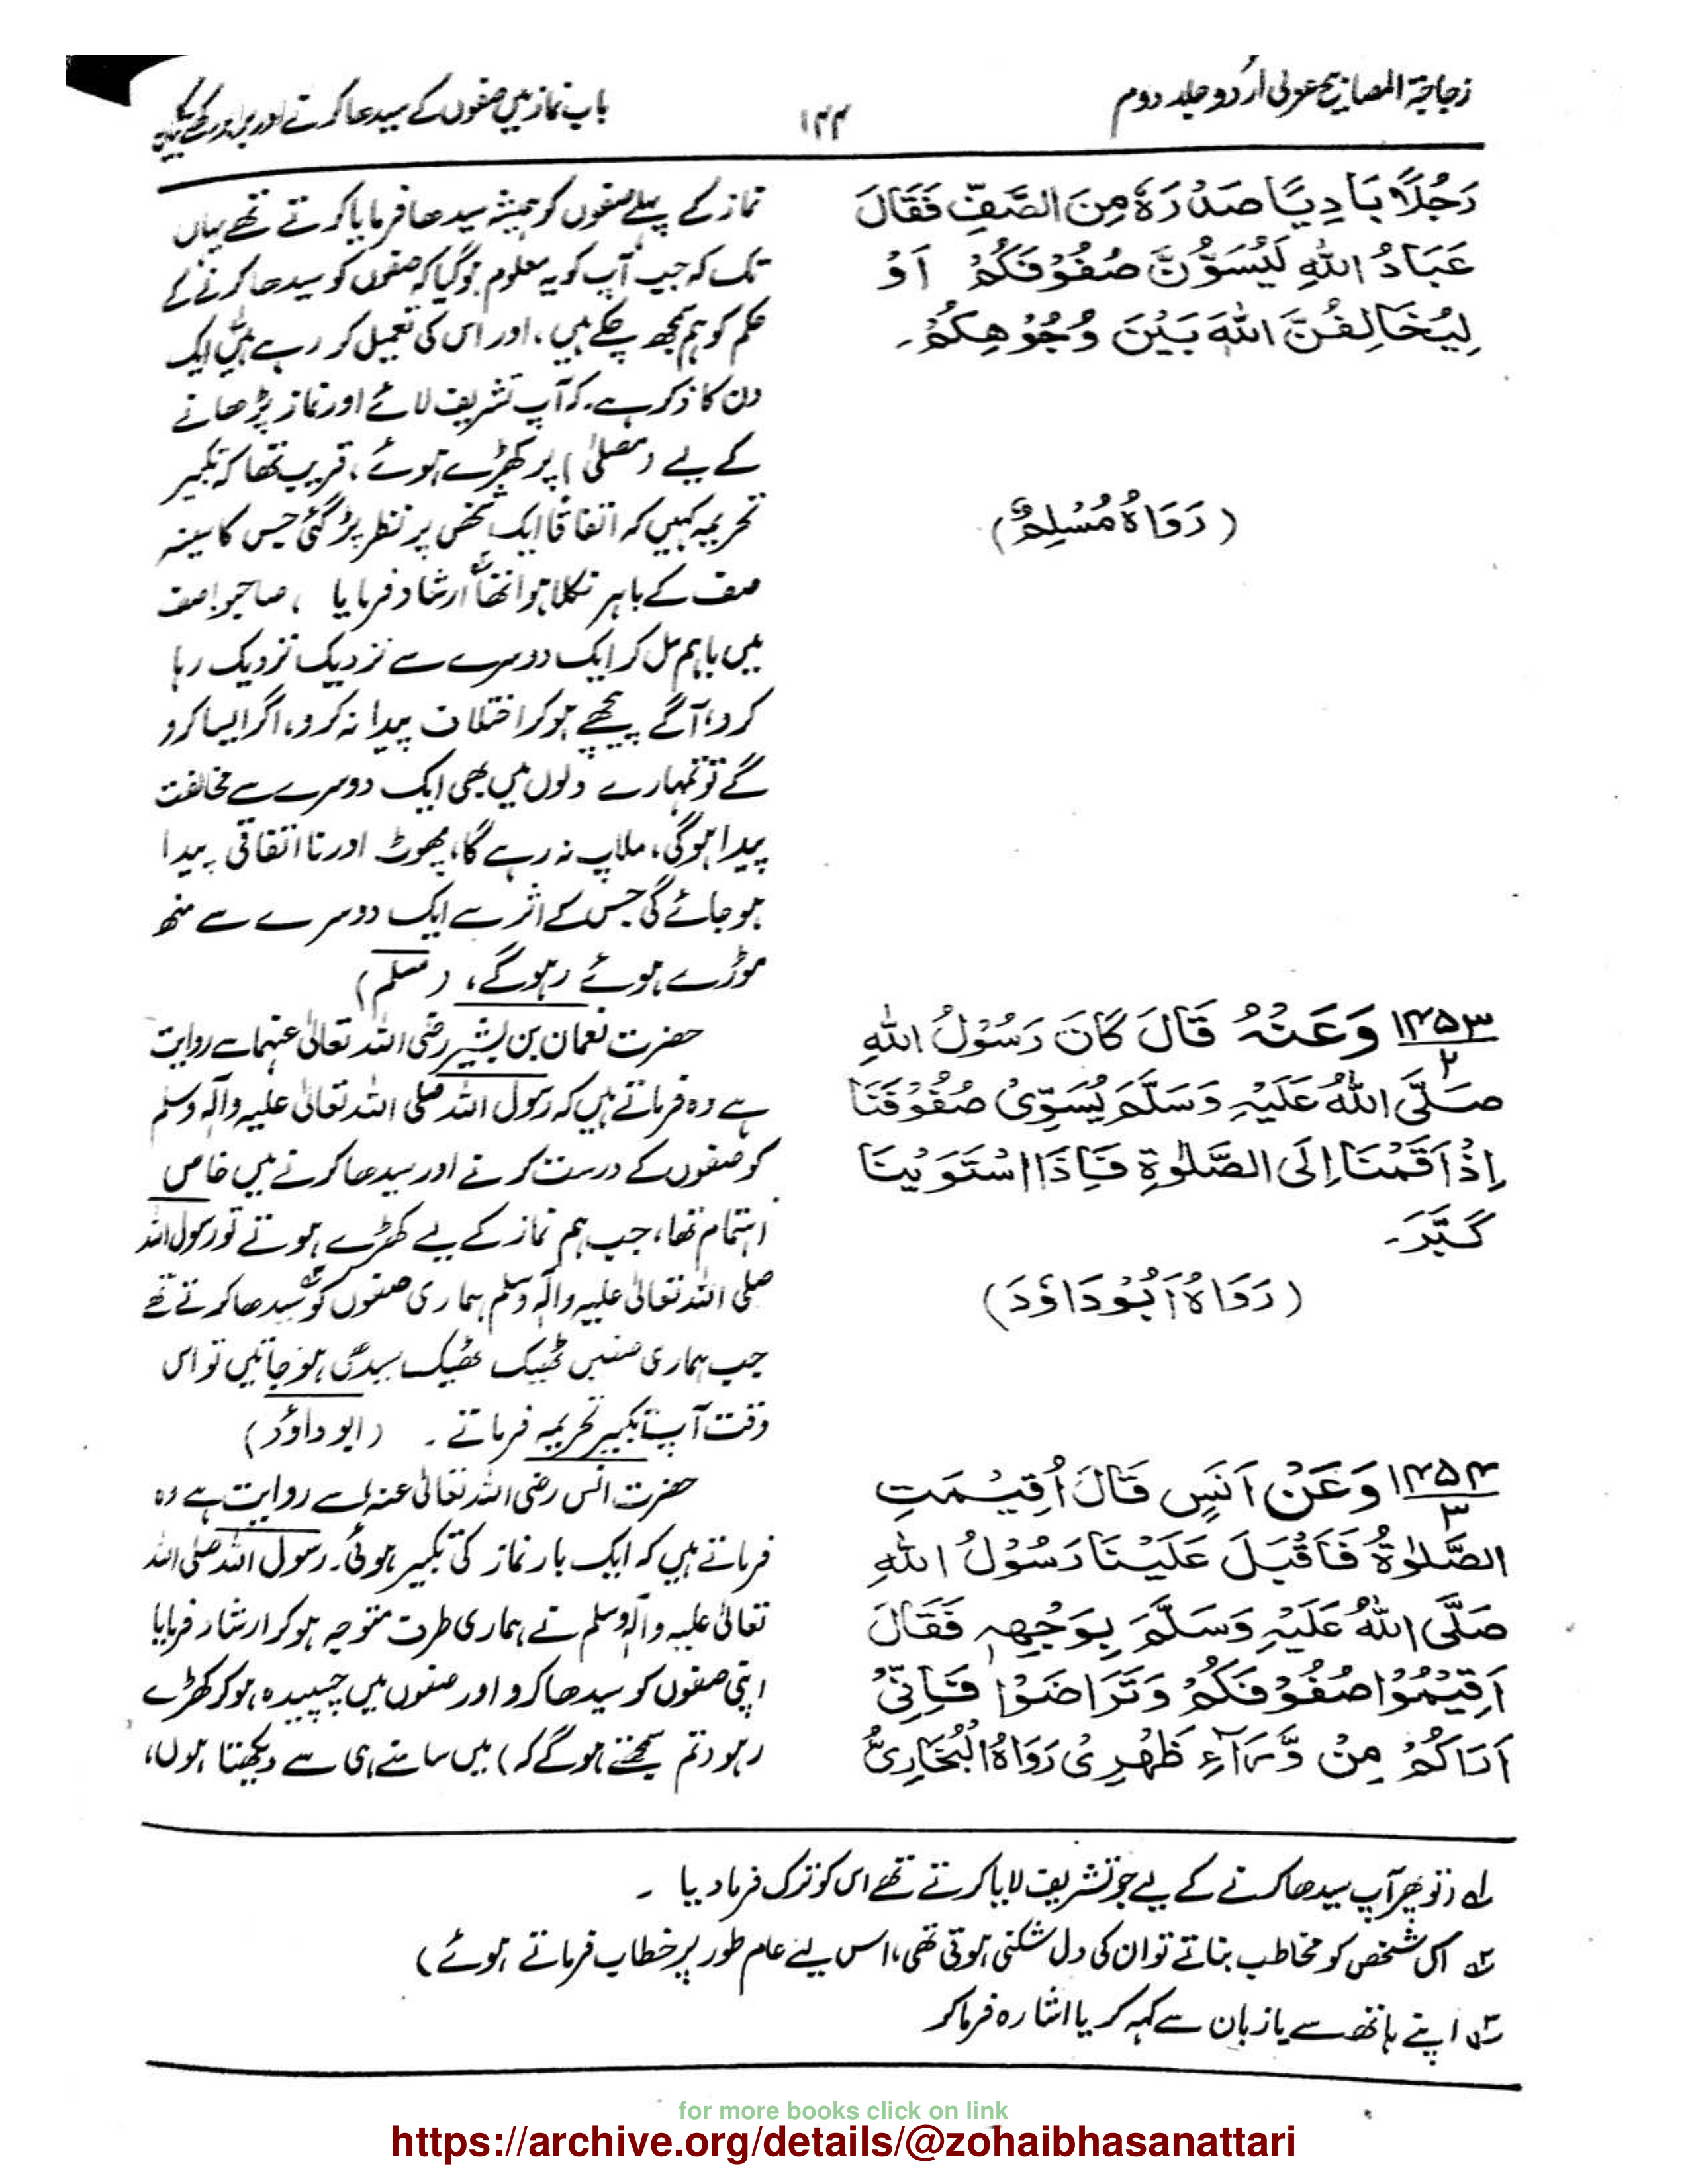 زجاجۃ المصابیح عربی اردو جلد دوم
۱۴۴
باب نماز میں صفوں کے سیدھا کرنے اور برابر
رَجُلًا بَادِيًّا صَدْرَهٗ مِنَ الصَّفِّ فَقَالَ
عَبَادُ اللهِ لَيُسَوُّنَّ صُفُوْفَكُمْ اَوْ
لِيُخَالِفُنَّ اللهَ بَيْنَ وُجُوْهِكُمْ۔
(رَوَاهُ مُسْلِمٌ)
نماز کے پہلے صفوں کو ہمیشہ سیدھا فرمایا کرتے تھے یہاں
تک کہ جب آپ کو یہ معلوم ہوگیا کہ صفوں کو سیدھا کرنے کے
حکم کو ہم سمجھ چکے ہیں، اور اس کی تعمیل کر رہے ہیں ایک
دن کا ذکر ہے۔ کہ آپ تشریف لائے اور نماز پڑھانے
کے لیے (مصلیٰ) پر کھڑے ہوئے، قریب تھا کہ تکبیر
تحریمہ کہیں کہ اتفاقاً ایک شخص پر نظر پڑ گئی جس کا سینہ
صف کے باہر نکلا ہوا تھا ارشاد فرمایا ، صاحبو! صف
میں باہم مل کر ایک دوسرے سے نزدیک نزدیک رہا
کرو، آگے پیچھے ہوکر اختلاف پیدا نہ کرو، اگر ایسا کرو
گے تو تمہارے دلوں میں بھی ایک دوسرے سے مخالفت
پیدا ہوگی، ملاپ نہ رہے گا، پھوٹ اور نا اتفاقی پیدا
ہو جائے گی جس کے اثر سے ایک دوسرے سے منھ
موڑے ہوئے رہو گے، (مسلم)
۱۴۵۳/۲ وَعَنْهُ قَالَ كَانَ رَسُوْلُ اللهِ
صَلَّى اللهُ عَلَيْهِ وَسَلَّمَ يُسَوِّىْ صُفُوْفَنَا
اِذْ اَقَمْنَا اِلَى الصَّلٰوةِ فَاِذَا اسْتَوَيْنَا
كَبَّرَ۔
(رَوَاهُ اَبُوْ دَاؤدَ)
حضرت نعمان بن بشیر رضی اللہ تعالیٰ عنہما سے روایت
ہے وہ فرماتے ہیں کہ رسول اللہ صلی اللہ تعالیٰ علیہ وآلہٖ وسلم
کو صفوں کے درست کرنے اور سیدھا کرنے میں خاص
اہتمام تھا، جب ہم نماز کے لیے کھڑے ہوتے تو رسول اللہ
صلی اللہ تعالیٰ علیہ وآلہٖ وسلم ہماری صفوں کو سیدھا کرتے تھے
جب ہماری صفیں ٹھیک ٹھیک سیدھی ہو جاتیں تو اس
وقت آپ تکبیر تحریمہ فرماتے۔ (ابو داؤد)
۱۴۵۴/۳ وَعَنْ اَنَسٍ قَالَ اُقِيْمَتِ
الصَّلٰوةُ فَاَقْبَلَ عَلَيْنَا رَسُوْلُ اللهِ
صَلَّى اللهُ عَلَيْهِ وَسَلَّمَ بِوَجْهِهٖ فَقَالَ
اَقِيْمُوْا صُفُوْفَكُمْ وَتَرَاصَوْا فَاِنِّىْ
اَرَاكُمْ مِنْ وَّرَآءِ ظَهْرِىْ رَوَاهُ الْبُخَارِىُّ
حضرت انس رضی اللہ تعالیٰ عنہ سے روایت ہے وہ
فرماتے ہیں کہ ایک بار نماز کی تکبیر ہوئی۔ رسول اللہ صلی اللہ
تعالیٰ علیہ وآلہٖ وسلم نے ہماری طرف متوجہ ہوکر ارشاد فرمایا
اپنی صفوں کو سیدھا کرو اور صفوں میں چسپیدہ ہوکر کھڑے
رہو (تم سمجھتے ہوگے کہ) میں سامنے ہی سے دیکھتا ہوں،
۱؎ (تو پھر آپ سیدھا کرنے کے لیے جو تشریف لایا کرتے تھے اس کو ترک فرما دیا ۔
۲؎ اس شخص کو مخاطب بناتے تو ان کی دل شکنی ہوتی تھی، اس لیے عام طور پر خطاب فرماتے ہوئے)
۳؎ اپنے ہاتھ سے یا زبان سے کہہ کر یا اشارہ فرما کر
for more books click on link
https://archive.org/details/@zohaibhasanattari